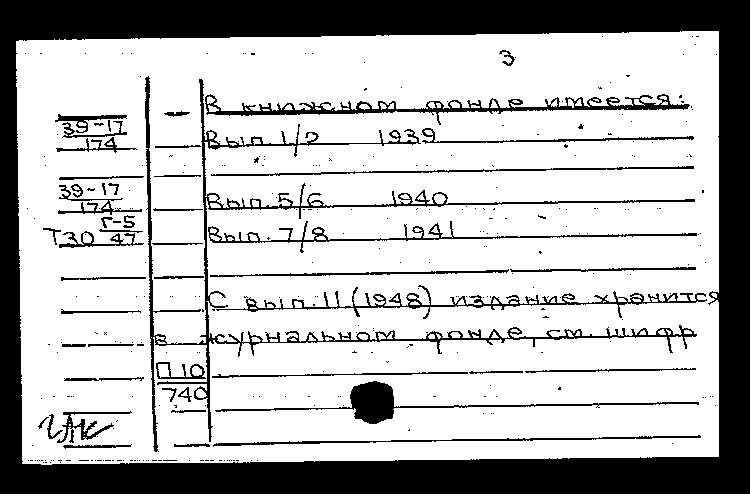 3
В книжном фонде имеется:
39-17
174
Вып. 1/2 1939
39-17
174
Вып. 5/6 1940
Т30 Г-5
47
Вып. 7/8 1941
С вып. 11 (1948) издание хранится
в журнальном фонде, см. шифр
П 10
740